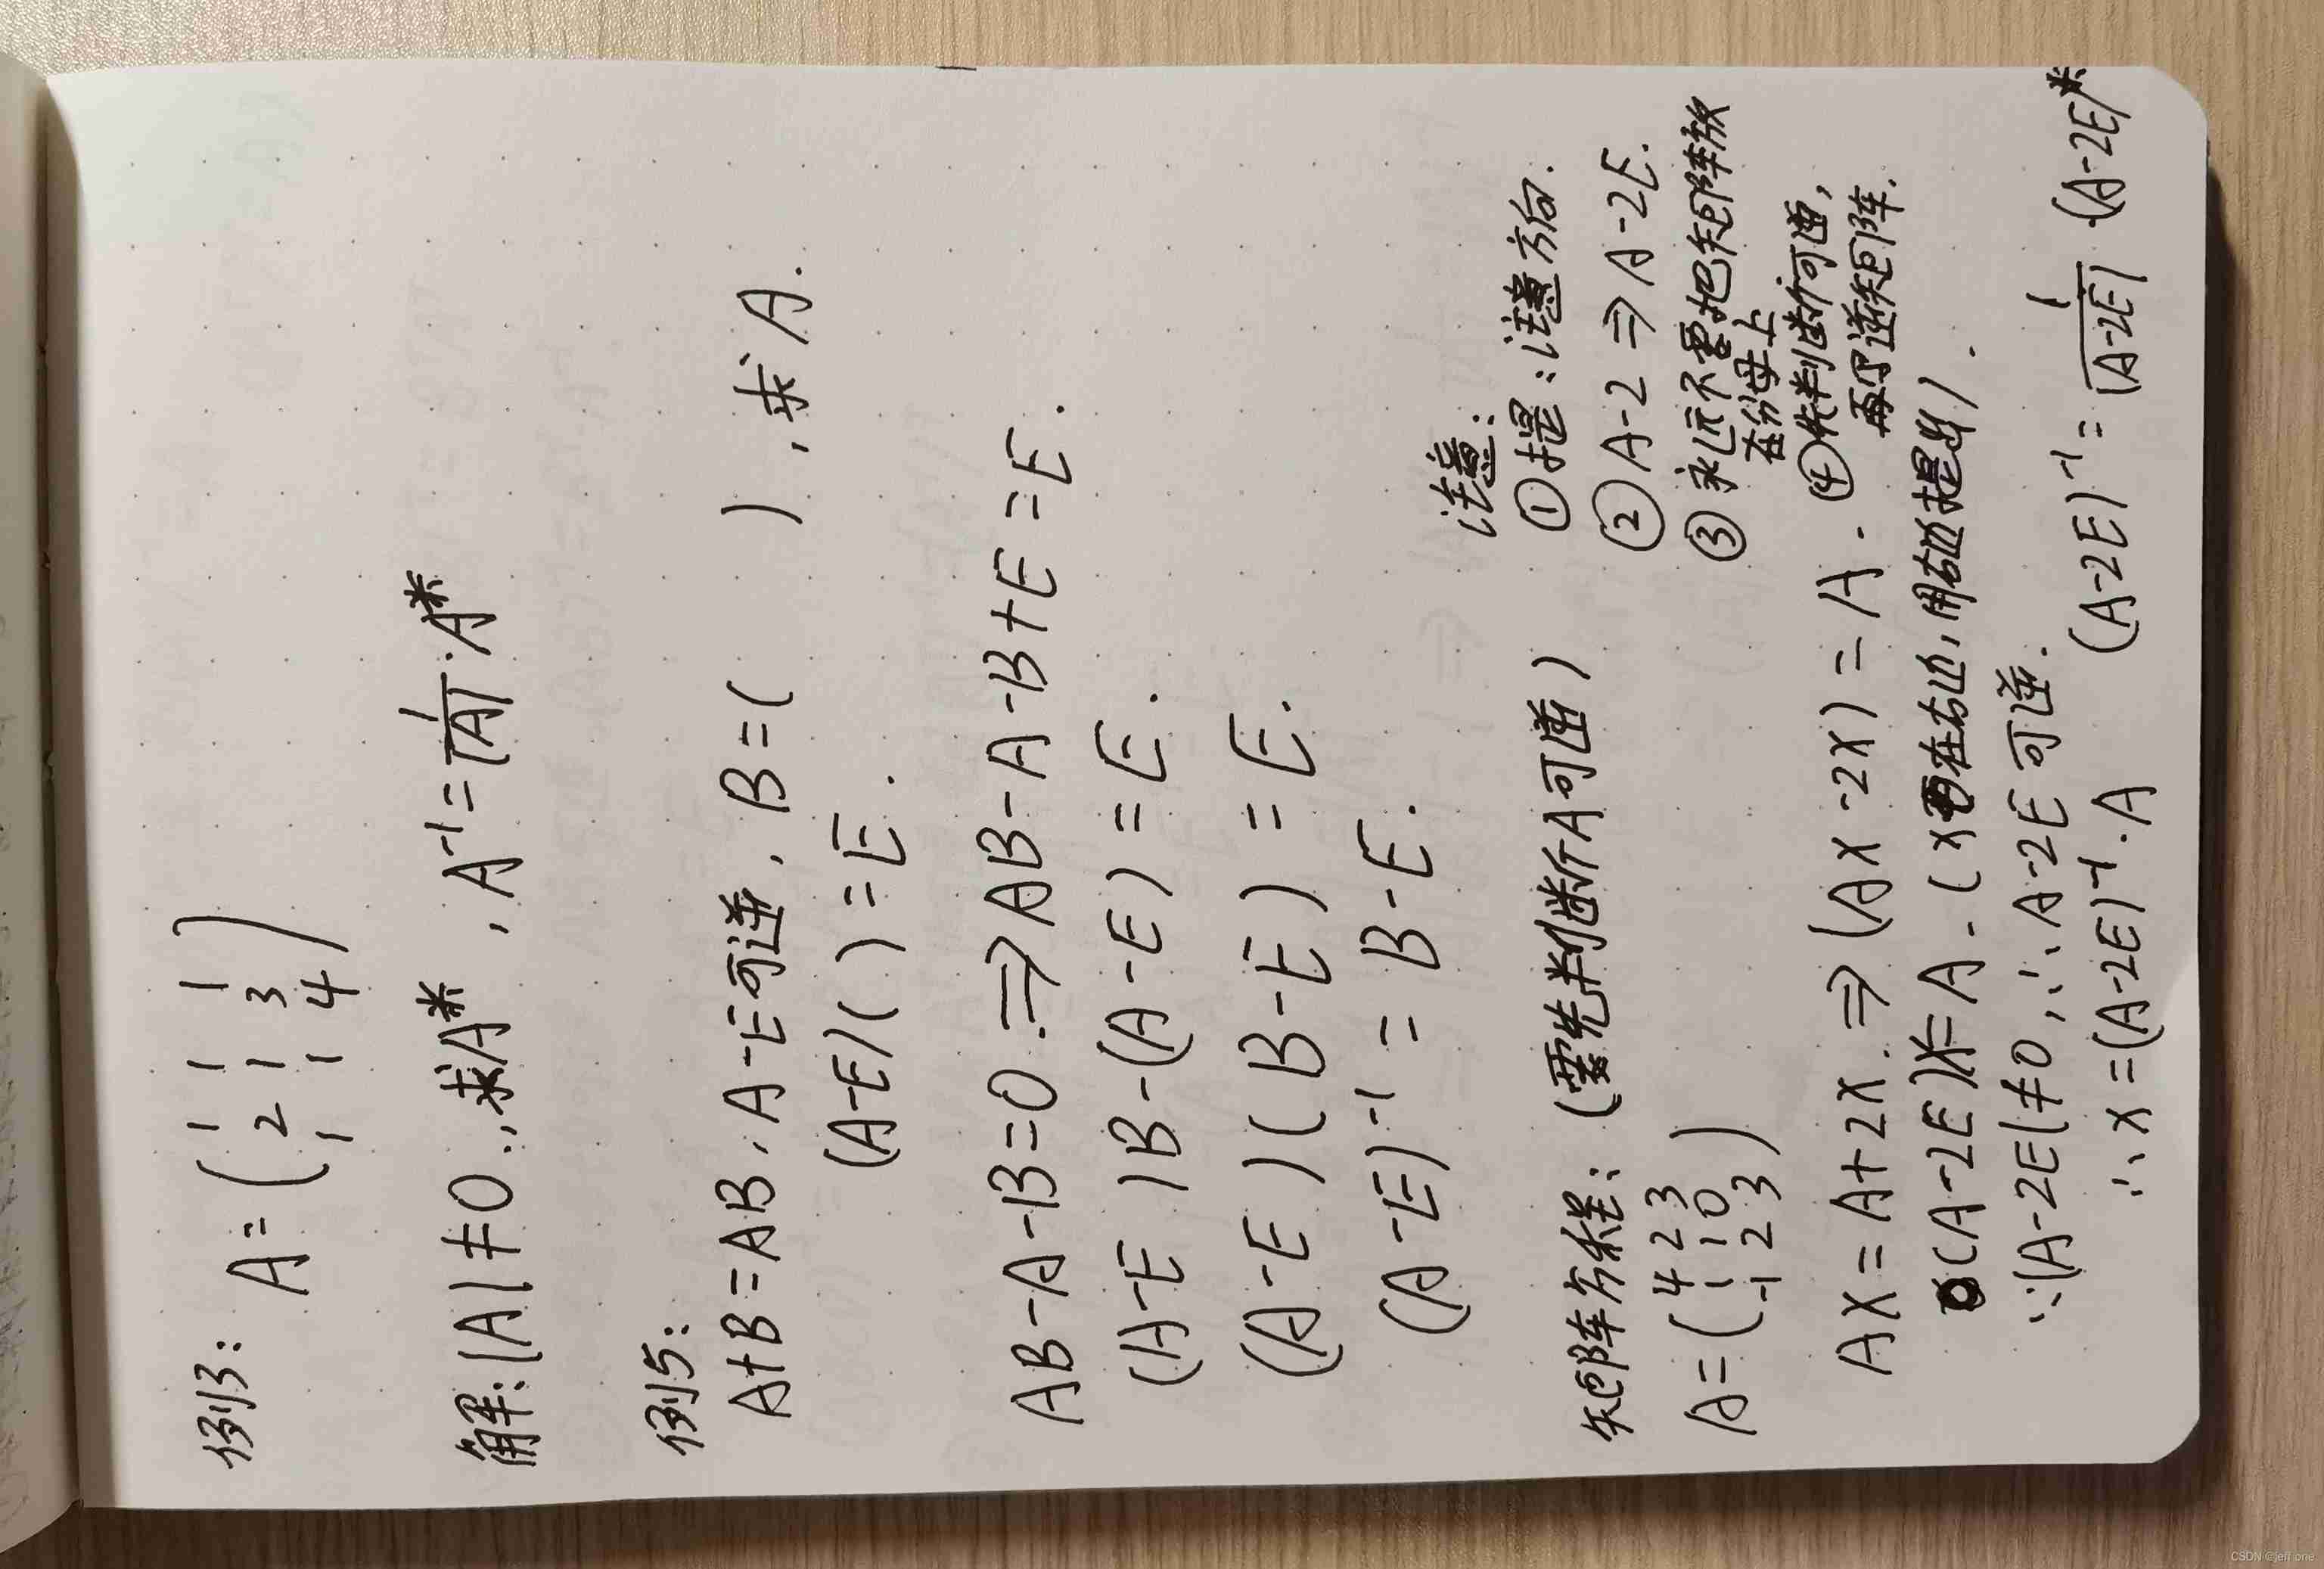 例3: A=( 1 1 1
2 1 3
1 1 4 )
解:|A|≠0.,求A*,A⁻¹=1/|A|·A*
例5:
A+B=AB,A-E可逆,B=( ),求A.
(A-E)( )=E.
AB-A-B=0.⇒AB-A-B+E=E.
(A-E)B-(A-E)=E.
(A-E)(B-E)=E.
(A-E)⁻¹=B-E.
矩阵方程:(需先判断A可逆)
A=( 4 2 3
1 1 0
-1 2 3 )
注意:
①提:注意方向.
②A-2⇒A-2E.
③永远不要把矩阵放
在分母上
④先判断可逆,
再写逆矩阵.
AX=A+2X.⇒(AX-2X)=A.
(A-2E)X=A.(X在右边,用右边提出).
∵|A-2E|≠0,∴A-2E可逆.
∴X=(A-2E)⁻¹·A
(A-2E)⁻¹=1/|A-2E| (A-2E)*
CSDN @jeff one